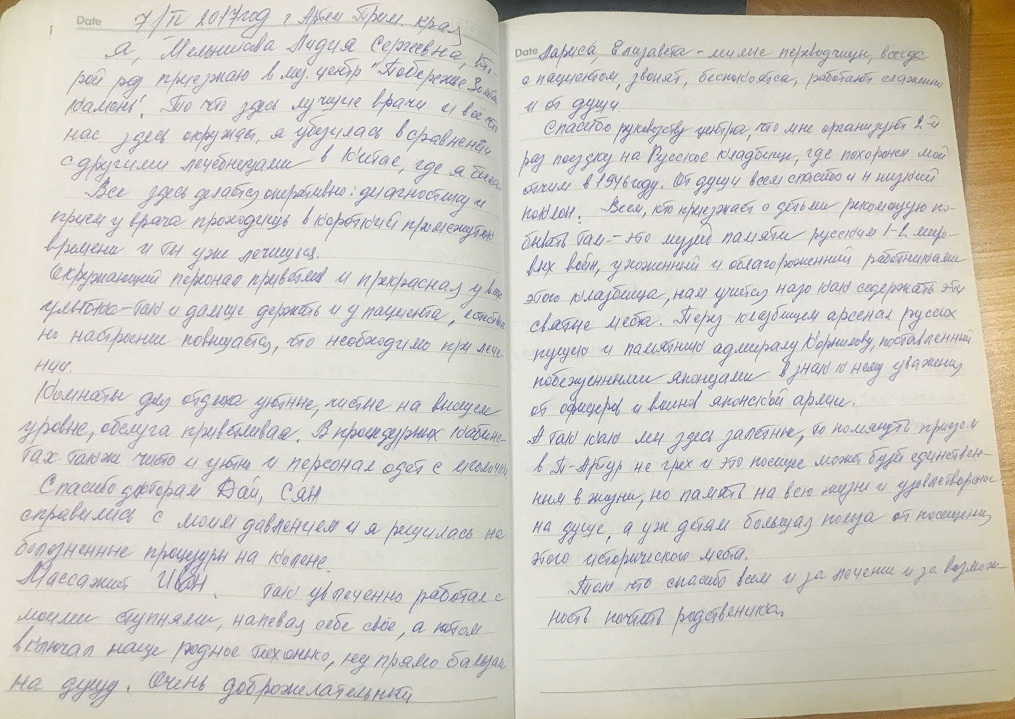 Date 7/II 2017год г. Артём Прим. край
Я, Мельникова Лидия Сергеевна,
рой раз приезжаю в мед. центр "Побережье Золотой
камень". То что здесь лучшие врачи и всё что
нас здесь окружает, я убедилась в сравнении
с другими лечебницами в Китае, где я была
Все здесь делается оперативно: диагностику и
прием у врача проходишь в короткий промежуток
времени и ты уже лечишся.
Окружающий персонал приветлив и прекрасная у всех
улыбка-так и дальше держать и у пациента, естестве
но настроение повышается, что необходимо при лече
нии.
Комнаты для отдыха уютные, чистые на высшем
уровне, обслуга приветливая. В процедурных кабине-
тах также чисто и уютно и персонал одет с иголочки
Спасибо докторам Дай, Сян
справились с моим давлением и я решилась на
болезненные процедуры на колене.
Массажист Иван. так увлеченно работал с
моими ступнями, напевая себе своё, а потом
включал наше родное тихонько, ну прямо бальзам
на душу. Очень доброжелательный
Date Лариса, Елизавета - милые переводчицы, всегда
с пациентом, звонят, беспокоятся, работают слаженно
и от души.
Спасибо руководству центра, что мне организуют 2-й
раз поездку на Русское кладбище, где похоронен мой
отчим в 1946 году. От души всем спасибо и низкий
поклон. Всем, кто приезжает с детьми рекомендую по-
бывать там - это музей памяти русским 1-2 миро-
вых войн, ухоженный и облагороженный работниками
этого кладбища, нам учится надо как содержать эти
святые места. Перед кладбищем арсенал русских
пушек и памятник адмиралу Корнилову, поставленный
побежденными японцами в знак к нему уважения
от офицеров и воинов японской армии.
А так как мы здесь залётные, то помянуть приедем
в П-Артур не грех и это посещение может будет единствен-
ным в жизни, но память на всю жизнь и удовлетворение
на душе, а уж детям большая польза от посещения
этого исторического места.
Так что спасибо всем и за лечение и за возмож-
ность почтить родственника.